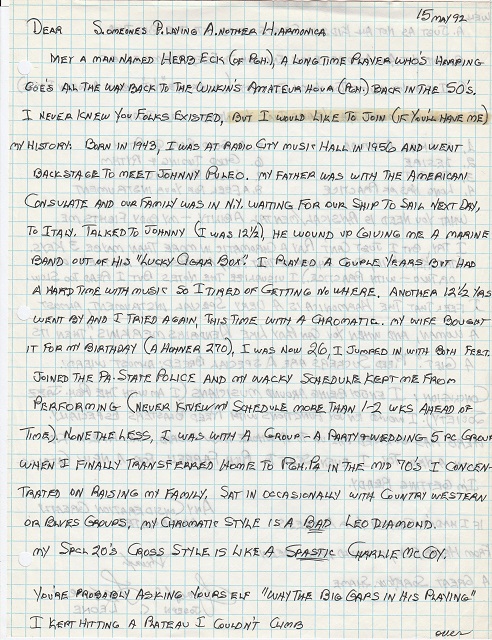 15 MAY 92
DEAR S.OMEONES P.LAYING A.NOTHER H.ARMONICA
MET A MAN NAMED HERB ECK (OF PGH.), A LONG TIME PLAYER WHO'S HARPING
GOES ALL THE WAY BACK TO THE WILKIN'S AMATEUR HOUR (PGH.) BACK IN THE 50'S.
I NEVER KNEW YOU FOLKS EXISTED, BUT I WOULD LIKE TO JOIN (IF YOU'LL HAVE ME)
MY HISTORY: BORN IN 1943, I WAS AT RADIO CITY MUSIC HALL IN 1956 AND WENT
BACKSTAGE TO MEET JOHNNY PULEO. MY FATHER WAS WITH THE AMERICAN
CONSULATE AND OUR FAMILY WAS IN N.Y. WAITING FOR OUR SHIP TO SAIL NEXT DAY,
TO ITALY. TALKED TO JOHNNY (I WAS 12½), HE WOUND UP GIVING ME A MARINE
BAND OUT OF HIS "LUCKY CIGAR BOX." I PLAYED A COUPLE YEARS BUT HAD
A HARD TIME WITH MUSIC SO I TIRED OF GETTING NO WHERE. ANOTHER 12½ YRS
WENT BY AND I TRIED AGAIN, THIS TIME WITH A CHROMATIC. MY WIFE BOUGHT
IT FOR MY BIRTHDAY (A HOHNER 270), I WAS NOW 26, I JUMPED IN WITH BOTH FEET.
JOINED THE PA. STATE POLICE AND MY WACKY SCHEDULE KEPT ME FROM
PERFORMING (NEVER KNEW MY SCHEDULE MORE THAN 1-2 WKS AHEAD OF
TIME). NONE THE LESS, I WAS WITH A GROUP - A PARTY & WEDDING 5 PC GROUP
WHEN I FINALLY TRANSFERRED HOME TO PGH. PA IN THE MID 70'S I CONCEN-
TRATED ON RAISING MY FAMILY. SAT IN OCCASIONALLY WITH COUNTRY WESTERN
OR BLUES GROUPS, MY CHROMATIC STYLE IS A BAD LEO DIAMOND.
MY SPCL 20'S CROSS STYLE IS LIKE A SPASTIC CHARLIE MCCOY.
YOU'RE PROBABLY ASKING YOURSELF "WHY THE BIG GAPS IN HIS PLAYING"
I KEPT HITTING A PLATEAU I COULDN'T CLIMB
over